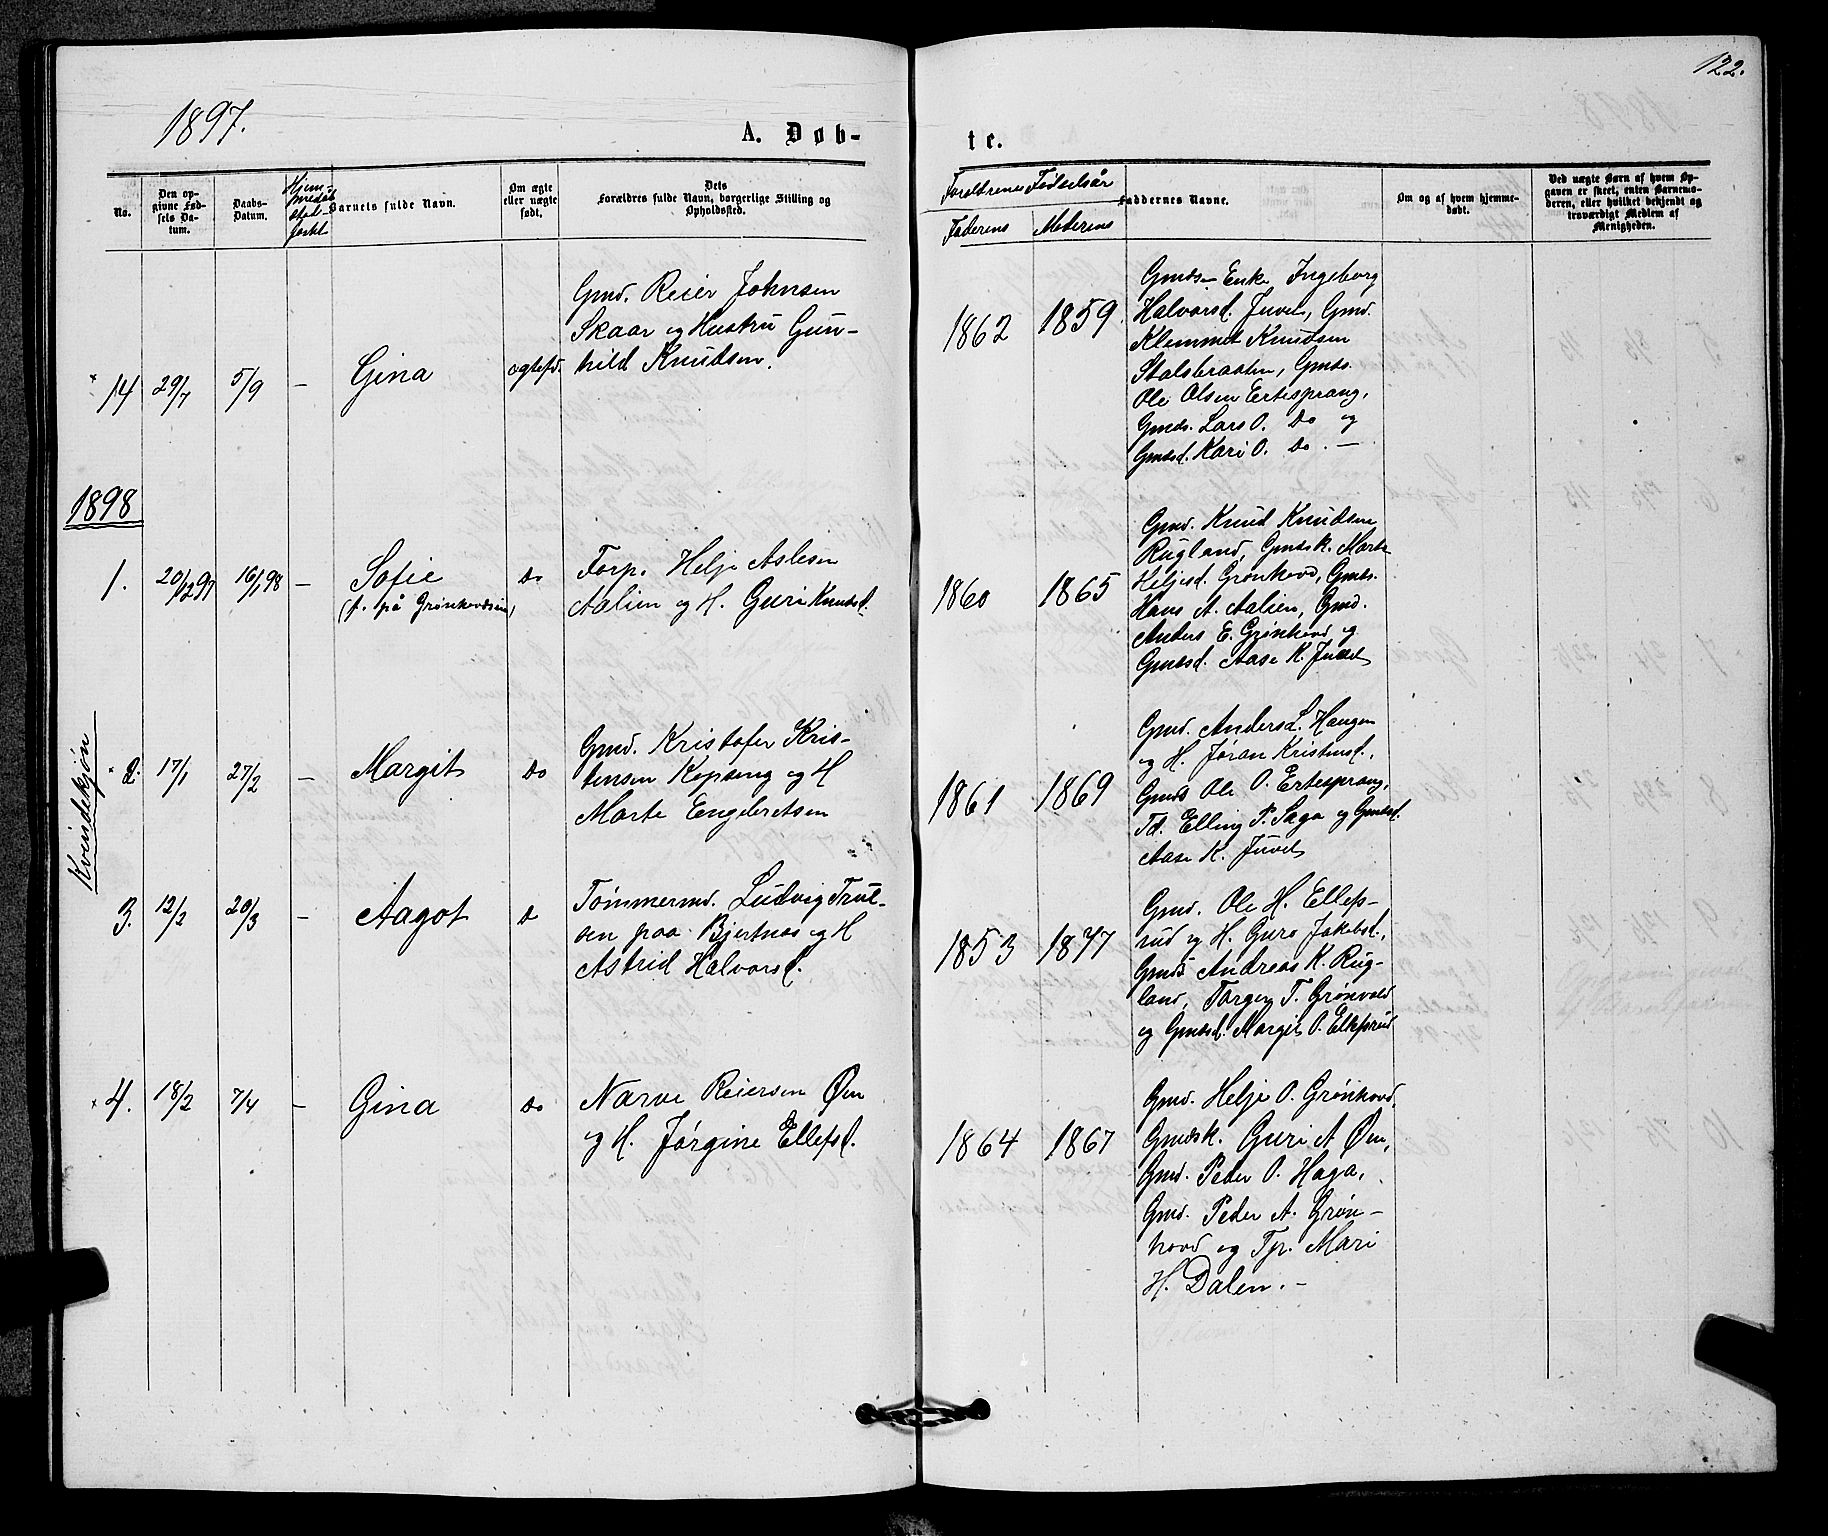 122.
1897.
A. Døb-
te.
No.
Den op-
givne Fød-
sels Da-
tum.
Daabs-
Datum.
Barnets fulde Navn.
Om ægte
eller uægte
født.
Dets
Forældres fulde Navn, borgerlige Stilling og
Opholdssted.
Forældrenes Fødselsår
Faderens
Moderens
Faddernes Navne.
Om og af hvem hjemme-
døbt.
Ved uægte Børn af hvem Op-
gaven er skeet, enten Barnemo-
deren, eller hvilket bekjendt og
troværdigt Medlem af
Menigheden.
14
29/7
5/9
–
Gina
ægtefd.
Gmd. Reier Johnsen
Skaar og Hustru Gun-
hild Knudsen.
1862
1859
Gmds Enke Ingeborg
Halvorsd. Juvet, Gmd.
Klemmet Knudsen
Stalsbraaten, Gmds.
Ole Olsen Ertesprang,
Gmds. Lars O. Do og
Gmdsd. Kari O. Do. –
1898
Kvindekjøn
1.
20/12 97
16/1 98
–
Sofie
(f. på Grønhovdseie)
Do
Forp. Helje Aslesen
Aalien og H. Guri Knudsd.
1860
1865
Gmd. Knud Knudsen
Rugland, Gmdsk. Marte
Heljesd. Grønhovd, Gmds.
Hans A. Aalien, Gmd.
Anders E. Grønhovd og
Gmdsd. Aase K. Juvet
2.
17/1
27/2
–
Margit
Do
Gmd. Kristofer Kris-
tensen Kopseng og H
Marte Engebretsen
1861
1869
Gmd. Anders L. Haugen
og H. Jøran Kristensd.,
Gmds Ole O. Ertesprang,
Td. Elling P. Saga og Gmdsd.
Aase K. Juvet
3.
12/2
20/3
–
Aagot
Do
Tømmermd. Ludvig Trul-
sen paa Bjertnæs og H
Astrid Halvorsd.
1853
1877
Gmd. Ole H. Ellefs-
rud og H. Guro Jakobsd.,
Gmds Andreas K. Rug-
land, Torger T. Grønvold
og Gmdsd. Margit O. Ellefsrud
4.
18/2
7/4
–
Gina
Do
Narve Reiersen Øen
og H. Jørgine Ellefsd.
1864
1867
Gmd. Helje O. Grønhovd,
Gmdsk. Guri A Øen,
Gmd. Peder O. Haga,
Gmd. Peder A. Grøn-
hovd og Tp. Mari
H. Dalen. –